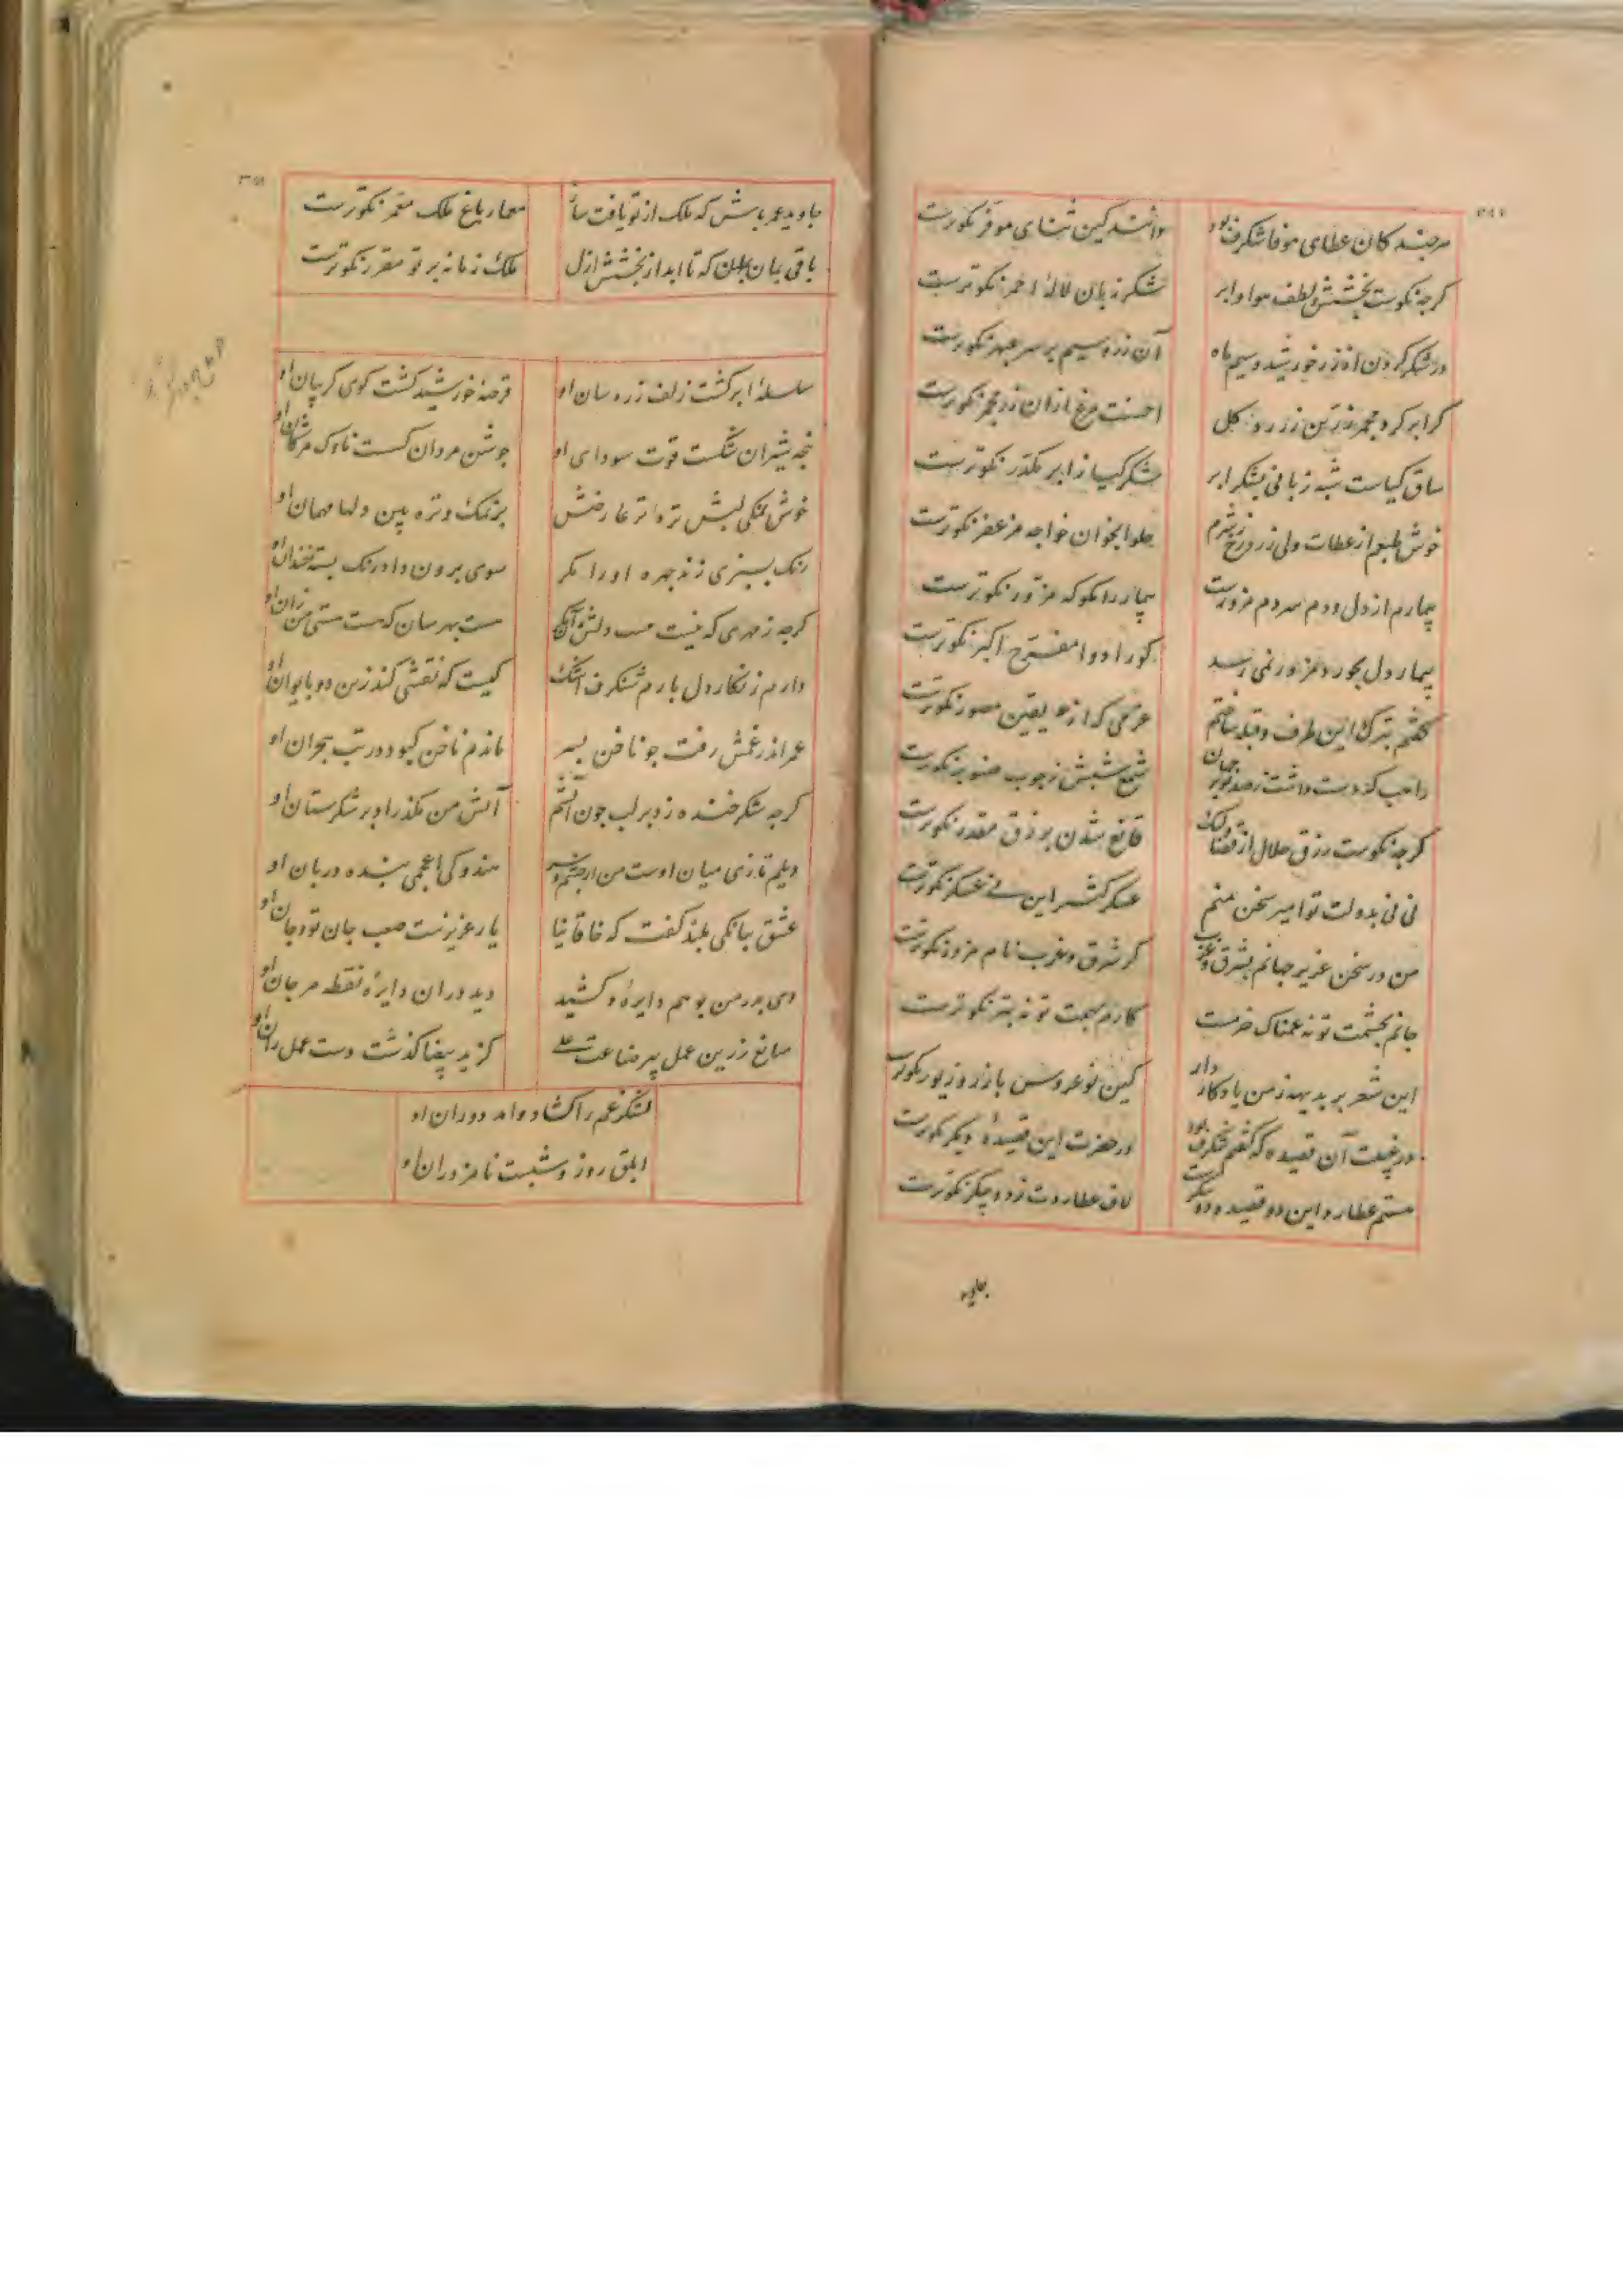 هر چند کان عطای موفا شکرف بود دانند کین ثنای موفر نکوترست
کرچه نکوست بخشش و لطف هوا و ابر شکر زبان لالهٔ احمر نکوترست
در شکر کردن زر خورشید و سیم ماه آن زر و سیم بر سر عبهر نکوترست
کر ابر کرد مجمر زرین زر روز کل احسنت مرغ ازان زر مجمر نکوترست
ساق کیاست شبه زبانی بشکر ابر شکر کیا ز ابر مکدر نکوترست
خوش طبعم از عطات ولی زرد رخ ز شرم حلوا بخوان خواجه مزعفر نکوترست
بیمارم از دل و دم سردم مزورست بیمار را مکو که مزور نکوترست
بیمار دل بجور و مزور نمی رسد کو را دوا مفرح اکبر نکوترست
کفتم بترک این طرف و قبله ساختم عزمی که از یقین مصور نکوترست
راهب که دست داشت ز صد نور جهان شمع شبش ز چوب صنوبر نکوترست
کرچه نکوست رزق حلال از قضا ولیک قانع شدن برزق مقدر نکوترست
نی نی بدولت تو امیر سخن منم عسکر کش این نی عسکر نکوترست
من در سخن عزیز جهانم بشرق و غرب کز شرق و غرب نام مزور نکوترست
جانم بحشمت تو نه غمناک خرمست کارم بهمت تو نه بتر نکوترست
این شعر بر بدیهه ز من یادکار دار کین نو عروس با زر و زیور نکوترست
در غیبت آن قصیده که کفتم شکرف بود در حضرت این قصیدهٔ دیکر نکوترست
هستم عطارد این دو قصیده دو پیکرست لاف عطاردت ز دو پیکر نکوترست
جاوید
جاوید عمر باش که ملک از تو یافت ساز معمار باغ ملک معمر نکوترست
باقی بمان که تا ابد از بخشش ازل ملک زمانه بر تو مقرر نکوترست
سلسلهٔ ابر کشت زلف زره سان او قرصهٔ خورشید کشت کوی کریبان او
پنجه شیران شکست قوت سودای او جوشن مردان کسست ناوک مژکان او
خوش نمکی لبش تره تر عارضش بر نمک و تره بین دلها مهمان او
رنک بسبزی زند چهره او را مکر سوی برون داد رنک پسته خندان او
کرچه ز مهری که نیست دلش آن من هست بهر سان که هست هستی من زان او
دارم زنکار دل بارم شنکرف اشک کیست که نقشی کند زین دو بایوان او
عمر اندر غمش رفت چو ناخن بسر ماندم ناخن کبود در تب هجران او
کرچه شکر خنده زد بر لب چون آتشم آتش من مکذراد بر شکرستان او
دیلم تازی میان اوست من از چشم و سر هندوکی اعجمی بنده دربان او
عشق ببانکی بلند کفت که خاقانیا یار عزیزست صعب جان تو و جان او
دی بدر من بوهم دایره در کشید دید در ان دایره نقطه مرجان او
صانع زرین عمل پیر صناعت علی کز ید بیضا کذشت دست عمل ران او
لشکر غم را کشاد وامد دوران او
ابلق روز و شبست نامزد ران او